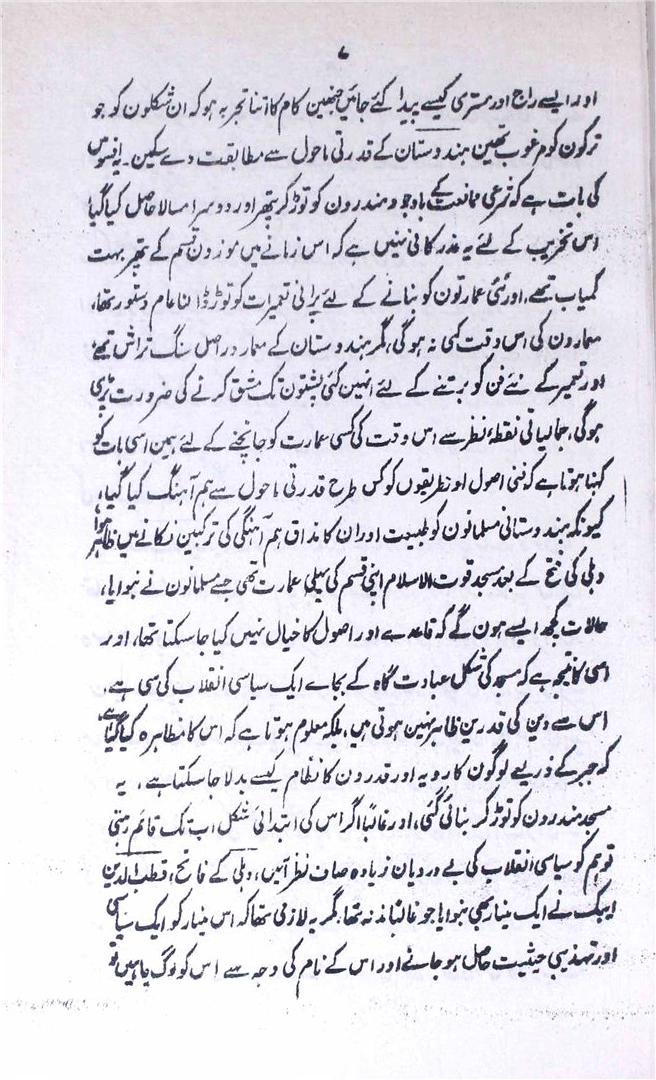 ۷
اور ایسے راج اور مستری کیسے پیدا کئے جائیں جنھین کام کا اتنا تجربہ ہو کہ ان شکلون کو جو
ترکون کو مرغوب تھین ہندوستان کے قدرتی ماحول سے مطابقت دے سکین۔ یہ افسوس
کی بات ہے کہ شرعی ممانعت کے باوجود مندرون کو توڑ کر پتھر اور دوسرا مسالا حاصل کیا گیا
اس تخریب کے لئے یہ عذر کافی نہیں ہے کہ اس زمانے میں موزون قسم کے پتھر بہت
کمیاب تھے، اور نئی عمارتون کو بنانے کے لئے پرانی تعمیرات کو توڑ ڈالنا عام دستور تھا،
معمارون کی اس وقت کمی نہ ہوگی، مگر ہندوستان کے معمار دراصل سنگ تراش تھے
اور تعمیر کے نئے فن کو برتنے کے لئے انہین کئی پشتون تک مشق کرنے کی ضرورت پڑی
ہوگی، جمالیاتی نقطۂ نظر سے اس وقت کی کسی عمارت کو جانچنے کے لئے ہمین اسی بات کو
کہنا ہوتا ہے کہ فنی اصول او نظریقوں کو کس طرح قدرتی ماحول سے ہم آہنگ کیا گیا،
کیونکہ ہندوستانی مسلمانون کو طبیعت اور ان کا مذاق ہم آہنگی کی ترکیبین نکالنے میں ظاہر ہوا
دہلی کی فتح کے بعد مسجد قوت الاسلام اپنی قسم کی پہلی عمارت تھی جسے مسلمانون نے بنوایا،
حالات کچھ ایسے ہون گے کہ قاعدے اور اصول کا خیال نہیں کیا جا سکتا تھا، اور
اسی کا نتیجہ ہے کہ مسجد کی شکل عبادت گاہ کے بجاے ایک سیاسی انقلاب کی سی ہے،
اس سے دین کی قدرین ظاہر نہین ہوتی ہیں، بلکہ معلوم ہوتا ہے کہ اس کا مظاہرہ کیا گیا ہے،
کہ جبر کے ذریعے لوگون کا رویہ اور قدرون کا نظام کیسے بدلا جا سکتا ہے، یہ
مسجد مندرون کو توڑ کر بنائی گئی، اور غالباً اگر اس کی ابتدائی شکل اب تک قائم رہتی
تو ہم کو سیاسی انقلاب کی بے دردیان زیادہ صاف نظر آئیں، دہلی کے فاتح، قطب الدین
ایبک نے ایک مینار بھی بنوایا جو غالباً مذنہ تھا، مگر یہ لازمی تھا کہ اس مینار کو ایک سیاسی
اور تہذیبی حیثیت حاصل ہو جائے اور اس کے نام کی وجہ سے اس کو لوگ چاہیں تو